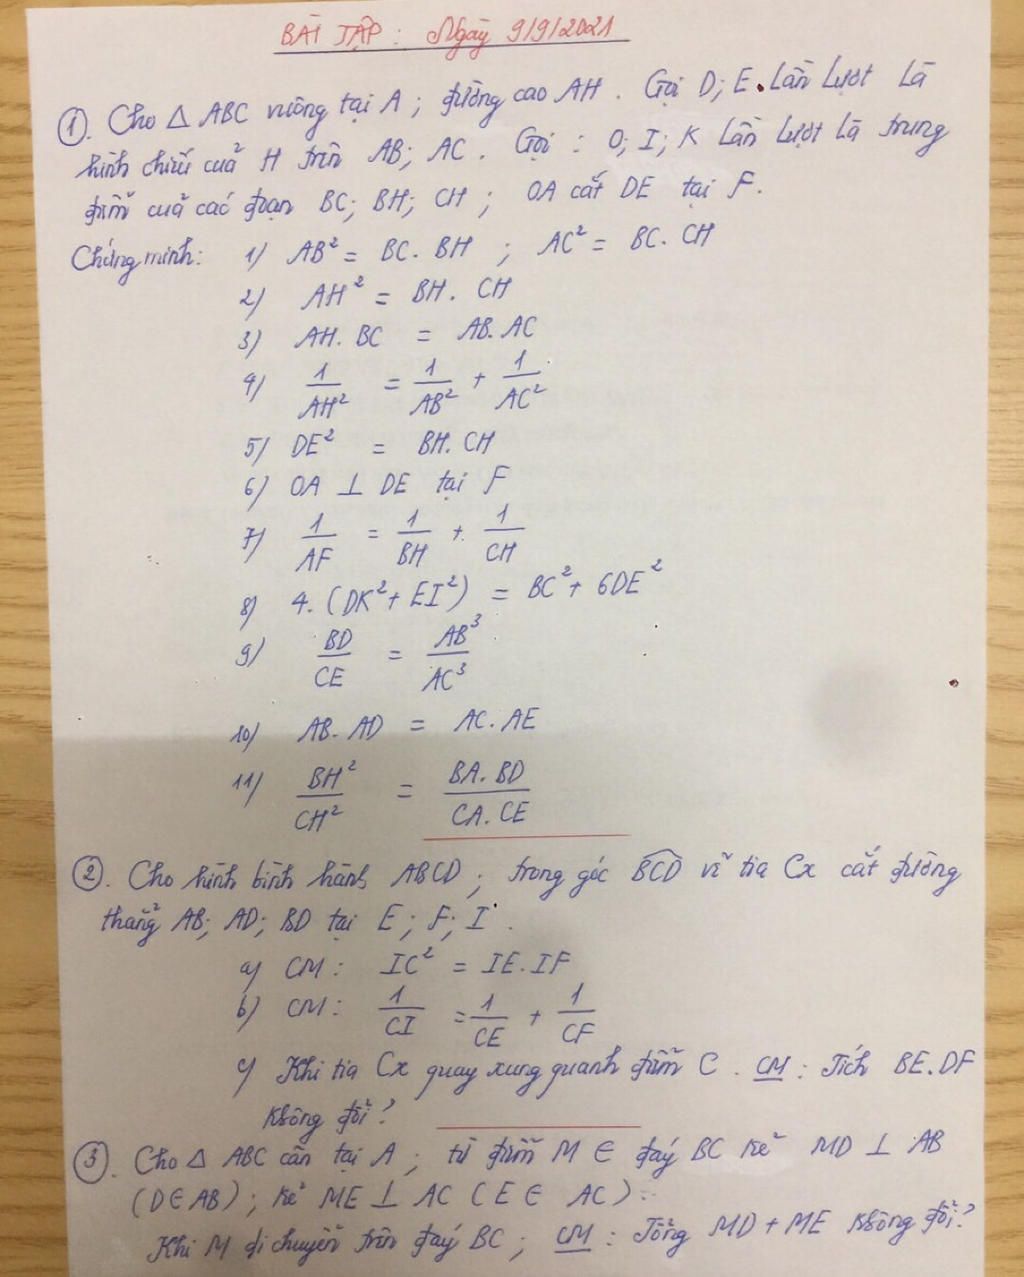 BÀI TẬP : Ngày 9/9/2021
①. Cho Δ ABC vuông tại A ; đường cao AH . Gọi D; E. Lần Lượt Là
hình chiếu của H trên AB; AC . Gọi : O; I; K Lần Lượt Là trung
điểm của các đoạn BC; BH; CH ; OA cắt DE tại F.
Chứng minh: 1) AB² = BC. BH ; AC² = BC. CH
2) AH² = BH. CH
3) AH. BC = AB. AC
4) 1/AH² = 1/AB² + 1/AC²
5) DE² = BH. CH
6) OA ⊥ DE tại F
7) 1/AF = 1/BH + 1/CH
8) 4. (DK² + EI²) = BC² + 6DE²
9) BD/CE = AB³/AC³
10) AB. AD = AC. AE
11) BH²/CH² = BA. BD/CA. CE
②. Cho hình bình hành ABCD ; trong góc BCD vẽ tia Cx cắt đường
thẳng AB; AD; BD tại E ; F; I .
a) CM : IC² = IE. IF
b) CM : 1/CI = 1/CE + 1/CF
c) Khi tia Cx quay xung quanh điểm C . CM : Tích BE. DF
không đổi?
③. Cho Δ ABC cân tại A ; từ điểm M ∈ đáy BC kẻ MD ⊥ AB
(D∈AB) ; kẻ ME ⊥ AC (E ∈ AC) .
Khi M di chuyển trên đáy BC ; CM : Tổng MD + ME không đổi?